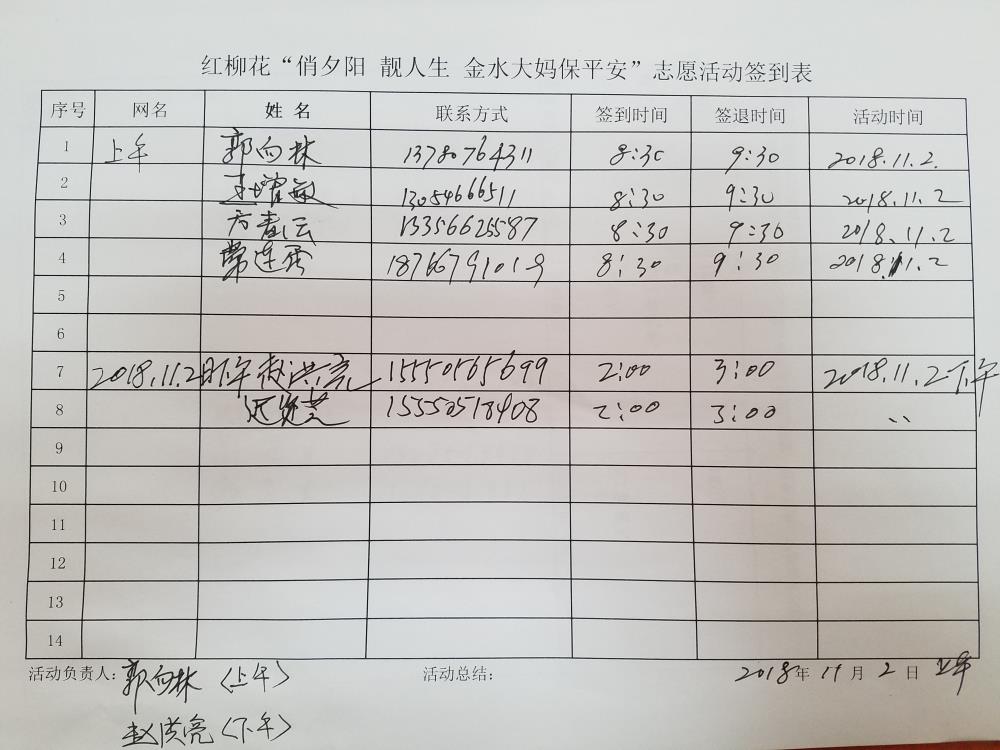 红柳花“俏夕阳 靓人生 金水大妈保平安”志愿活动签到表
序号 网名 姓名 联系方式 签到时间 签退时间 活动时间
1 上午 郭向林 13780764311 8:30 9:30 2018.11.2.
2 13054666511 8:30 9:30 2018.11.2
3 方青云 13356625587 8:30 9:30 2018.11.2
4 常连香 18766791019 8:30 9:30 2018.11.2
5
6
7 2018.11.2下午 赵洪亮 15550565699 2:00 3:00 2018.11.2下午
8 15550518408 2:00 3:00 〃
9
10
11
12
13
14
活动负责人: 郭向林(上午) 活动总结: 2018年 11月 2日 上午
赵洪亮(下午)